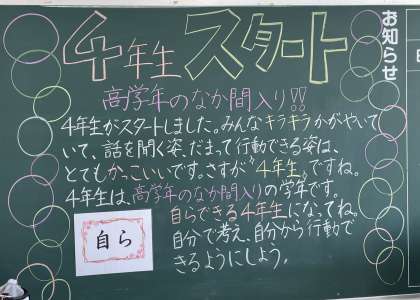 お知らせ
4年生スタート
高学年のなか間入り!!
4年生がスタートしました。みんなキラキラかがやいて
いて、話を聞く姿、だまって行動できる姿は、
とてもかっこいいです。さすが"4年生"ですね。
4年生は、高学年のなか間入りの学年です。
自らできる4年生になってね。
自分で考え、自分から行動で
きるようにしよう。
自ら